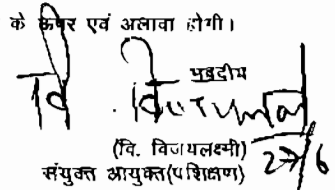 के ऊपर एवं अलावा होगी।
भवदीय
(वि. विजयलक्ष्मी)
संयुक्त आयुक्त(प्रशिक्षण)
27/6